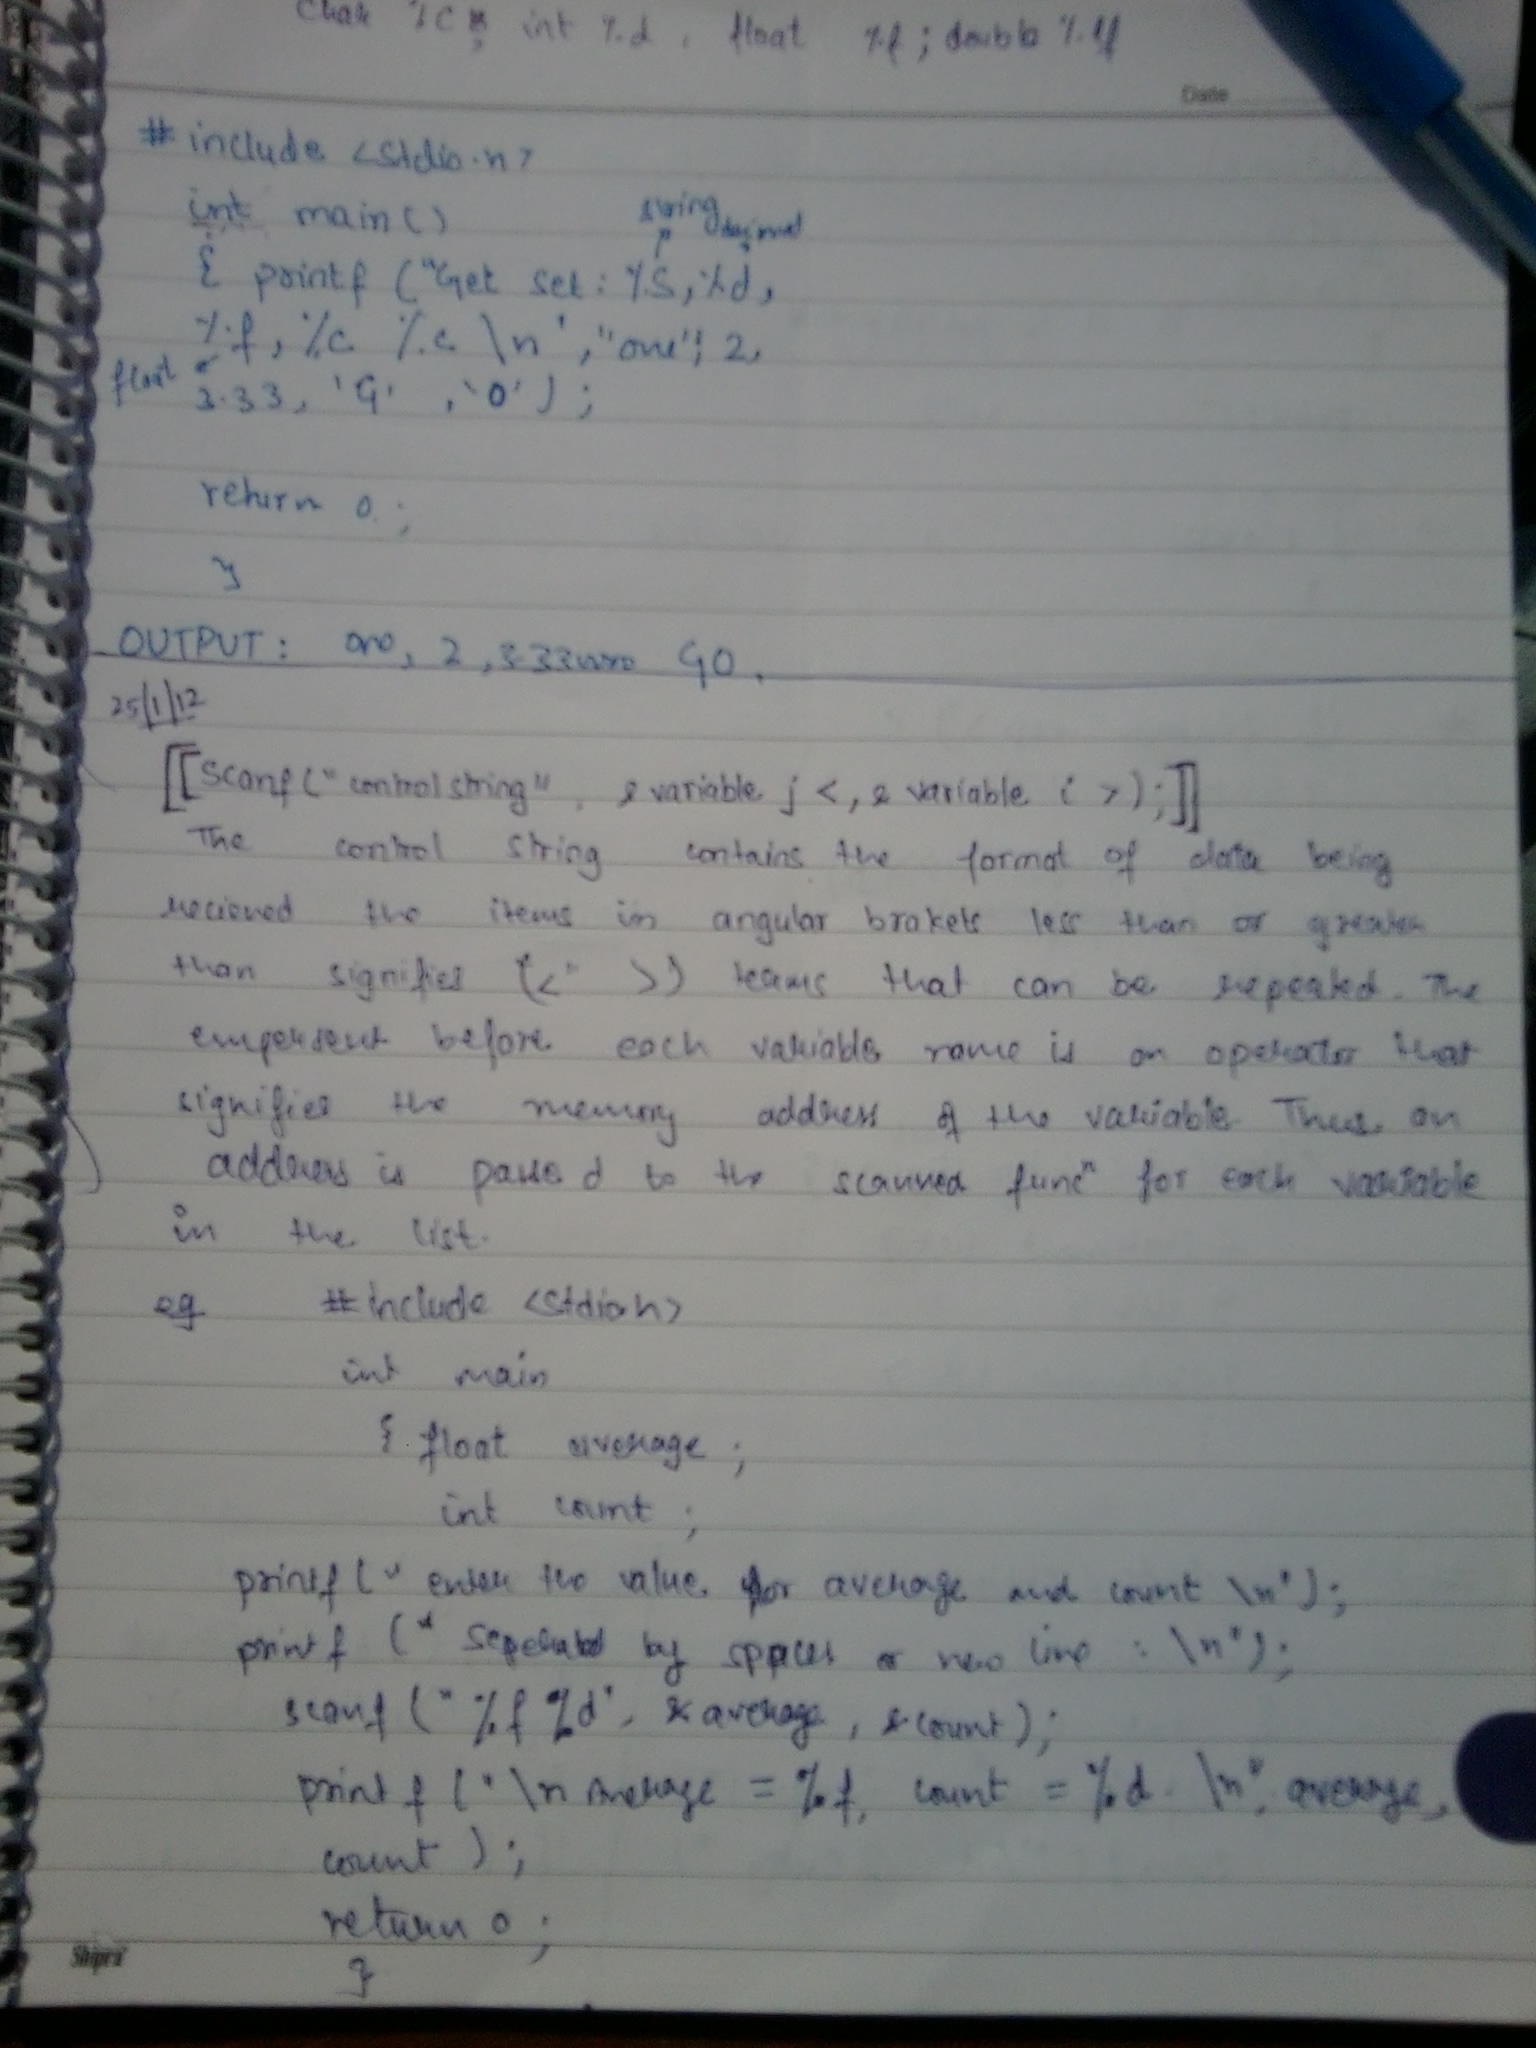 Char %c ; int %d , float %f ; double %lf
Date
# include <stdio.h>
int main()
string decimal
{ printf ("Get set: %s, %d,
%f, %c %c \n", "one", 2,
float
3.33, 'G' , 'O' ) ;
return 0 ;
}
OUTPUT : one, 2, 3.33 GO.
25/1/12
[[scanf (" control string" , & variable j <, & variable i >) ; ]]
The control string contains the format of data being
recieved the items in angular brakets less than or greater
than signifies ("<" >) teams that can be repeated. The
empersent before each variable name is an operator that
signifies the memory address of the variable. Thus an
address is passed to the scanned funcⁿ for each variable
in the list.
eg # include <stdio.h>
int main
{ float average ;
int count ;
printf (" enter the value for average and count \n");
printf (" seperated by spaces or new line : \n");
scanf (" %f %d", & average , & count );
printf (" \n Average = %f, count = %d \n", average,
count ) ;
return 0 ;
}
Shipra